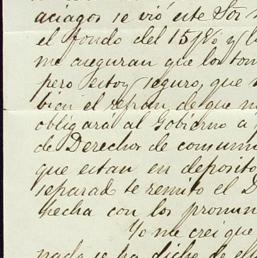 aciagos se vió este Sor
el fondo del 15 p% y l
me aseguran que los ton
pero estoy seguro, que
bien el refran, de que
obligará al Gobierno a
de Derechos de consumo
que estan en deposito
separado te remito el D
fecha con los pronun
Yo me crei que
nada se ha dicho de el